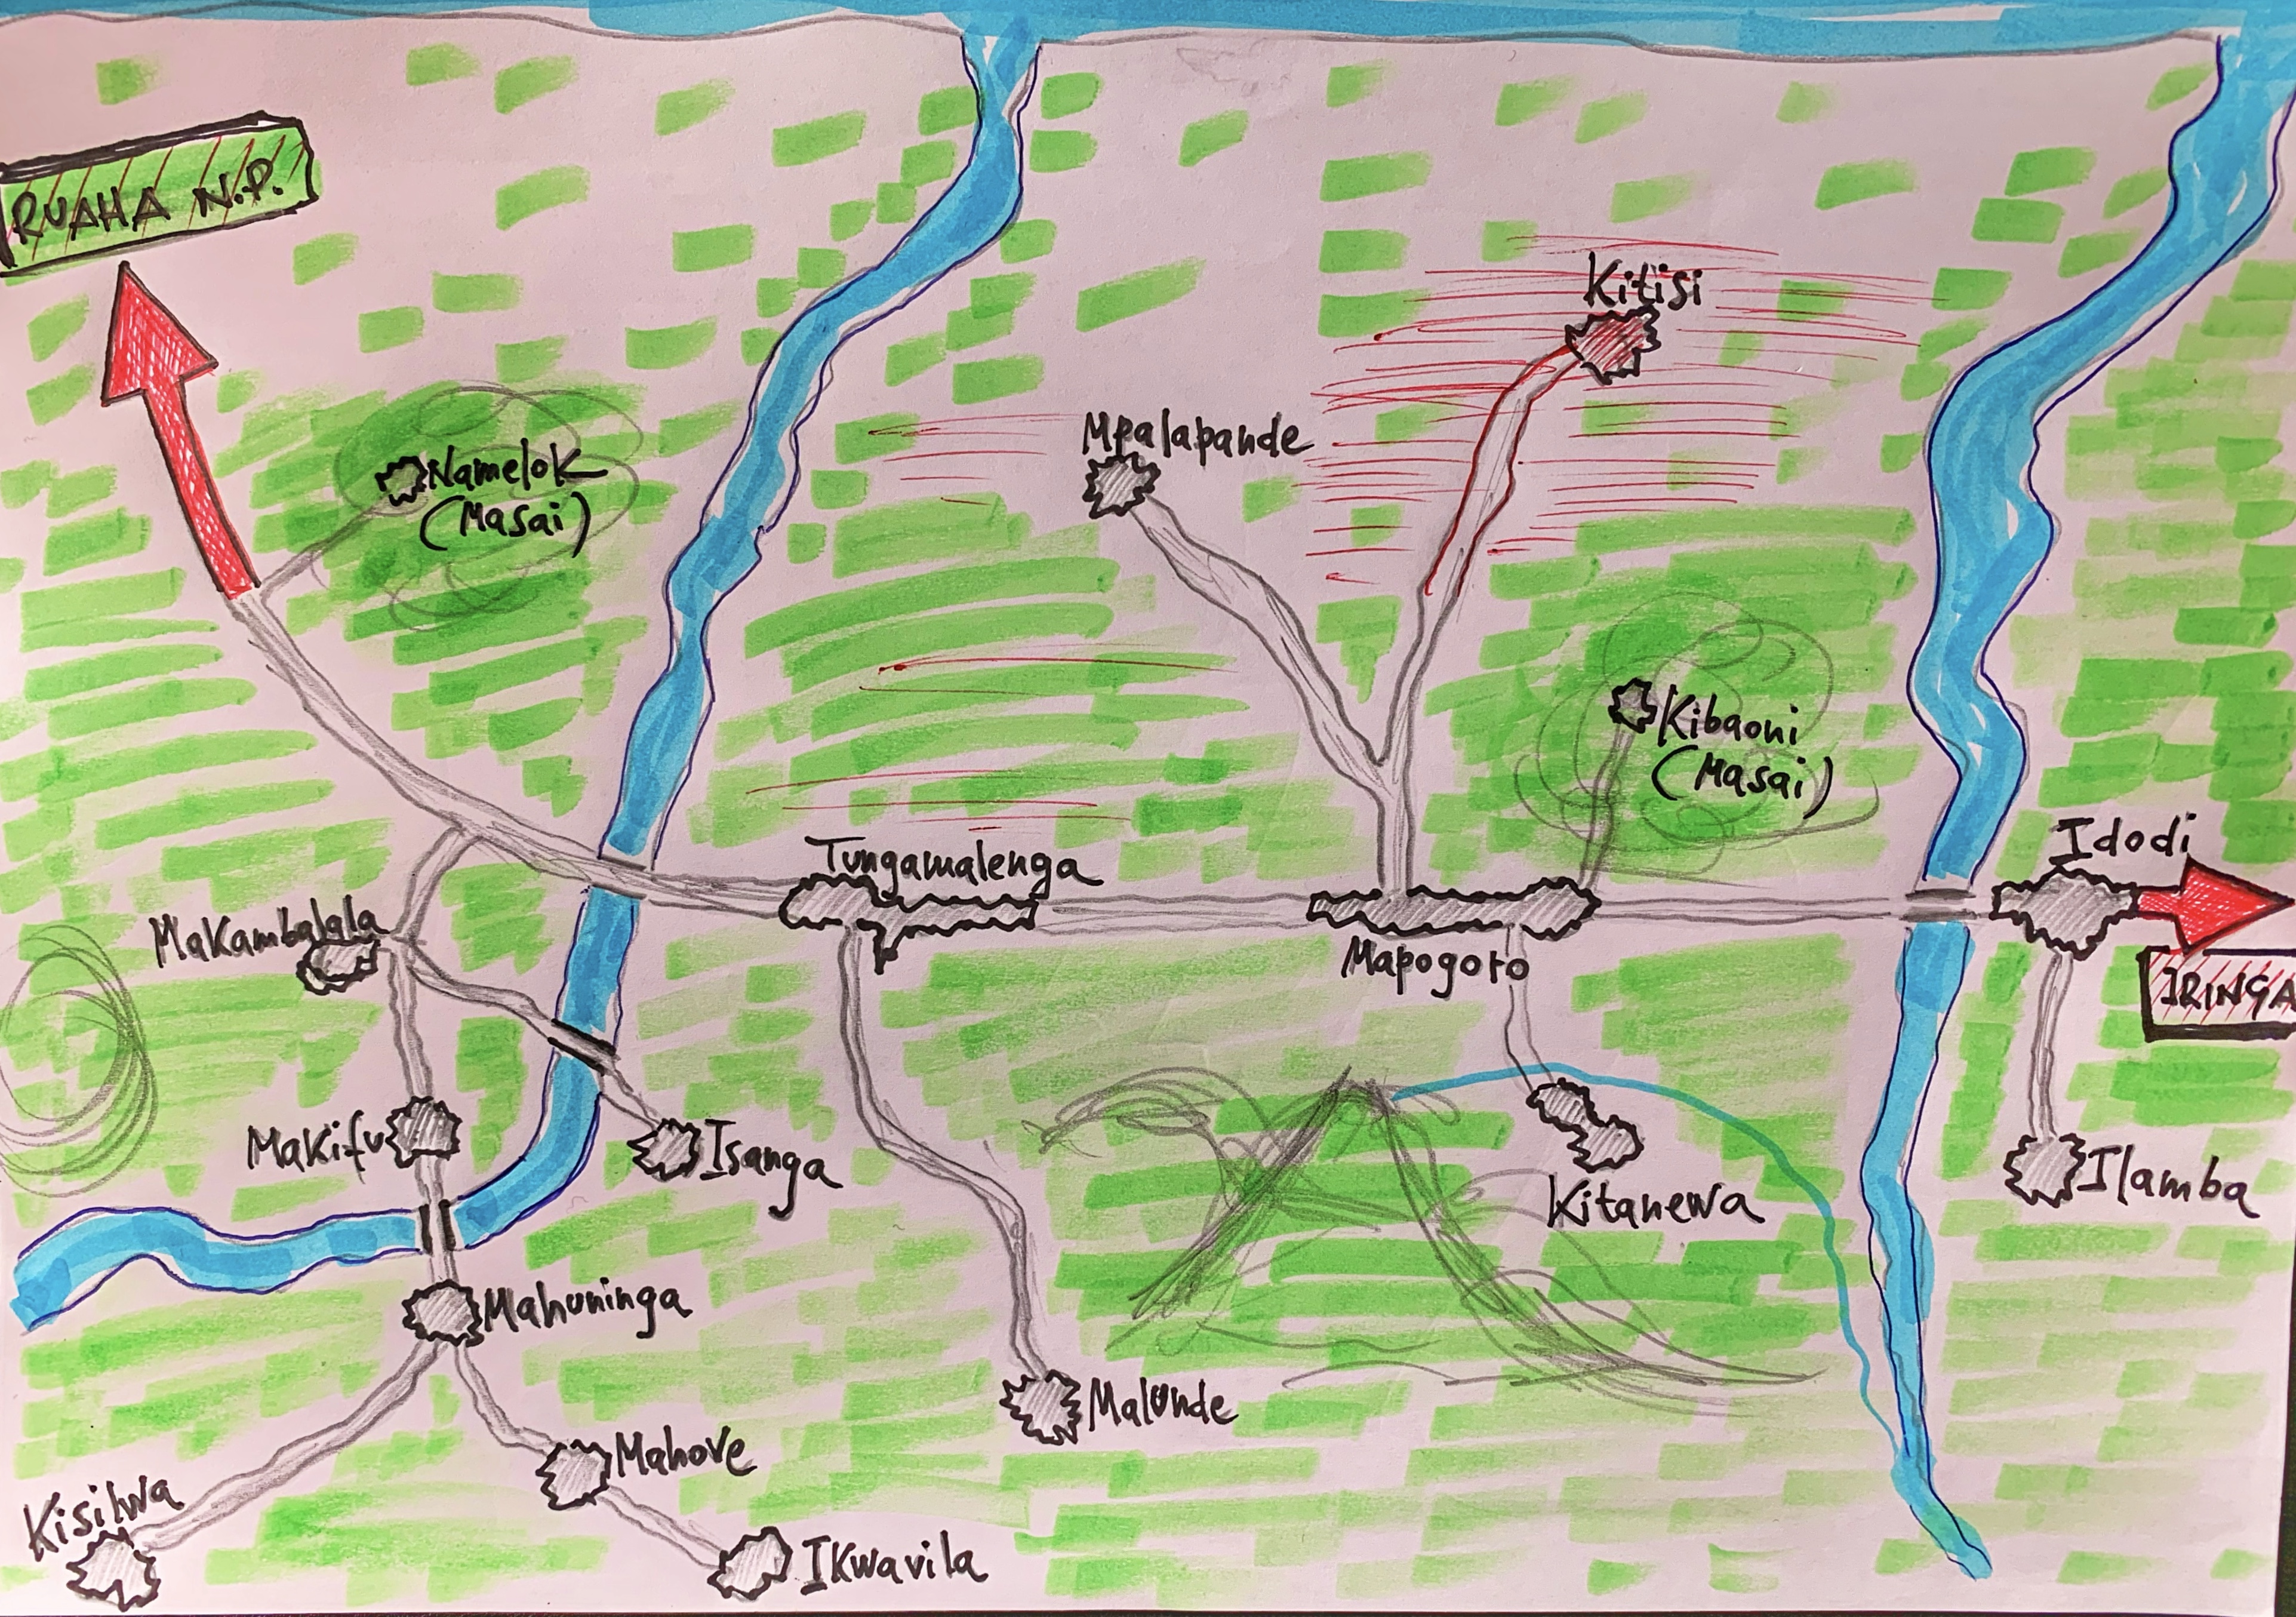 RUAHA N.P.
Kitisi
Mpalapande
Namelok
(Masai)
Kibaoni
(Masai)
Idodi
Tungamalenga
Makambalala
Mapogoro
IRINGA
Makifu
Isanga
Kitanewa
Ilamba
Mahuninga
Malunde
Mahove
Kisilwa
Ikwavila